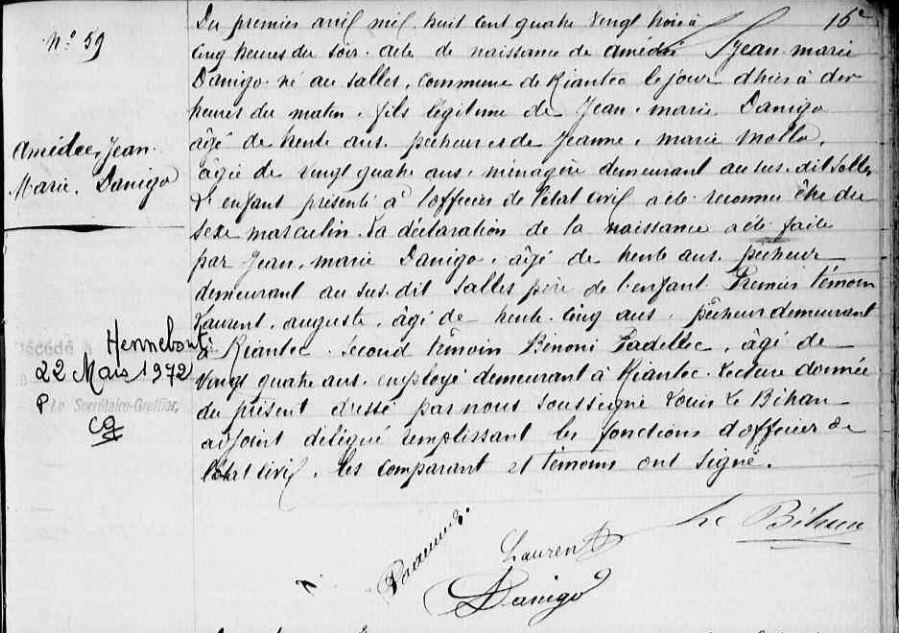 16e
N° 59
Amédée, Jean
Marie, Danigo
Du premier avril mil huit cent quatre vingt trois à
cinq heures du soir. acte de naissance de amédée Jean marie
Danigo né au salles, commune de Riantec le jour d'hier à dix
heures du matin. fils légitime de Jean. marie Danigo
âgé de trente ans. pêcheur et de Jeanne, marie mollo,
âgée de vingt quatre ans, ménagère demeurant au sus. dit Salles
L'enfant présenté à l'officier de l'état civil a été reconnu être du
sexe masculin. La déclaration de la naissance a été faite
par Jean, marie Danigo. âgé de trente ans. pêcheur
demeurant au sus. dit Salles père de l'enfant Premier témoin
Laurent, auguste, âgé de trente. cinq ans, pêcheur demeurant
à Riantec. second témoin Bénoni Fadellec, âgé de
vingt quatre ans. employé demeurant à Riantec. Lecture donnée
du présent dressé par nous soussigné Louis Le Bihan
adjoint délégué remplissant les fonctions d'officier de
l'état civil. les comparant et témoins ont signé.
Décédé à Hennebont
22 Mars 1972
P Le Secrétaire-Greffier,
Le Bihan
Laurent
Danigo